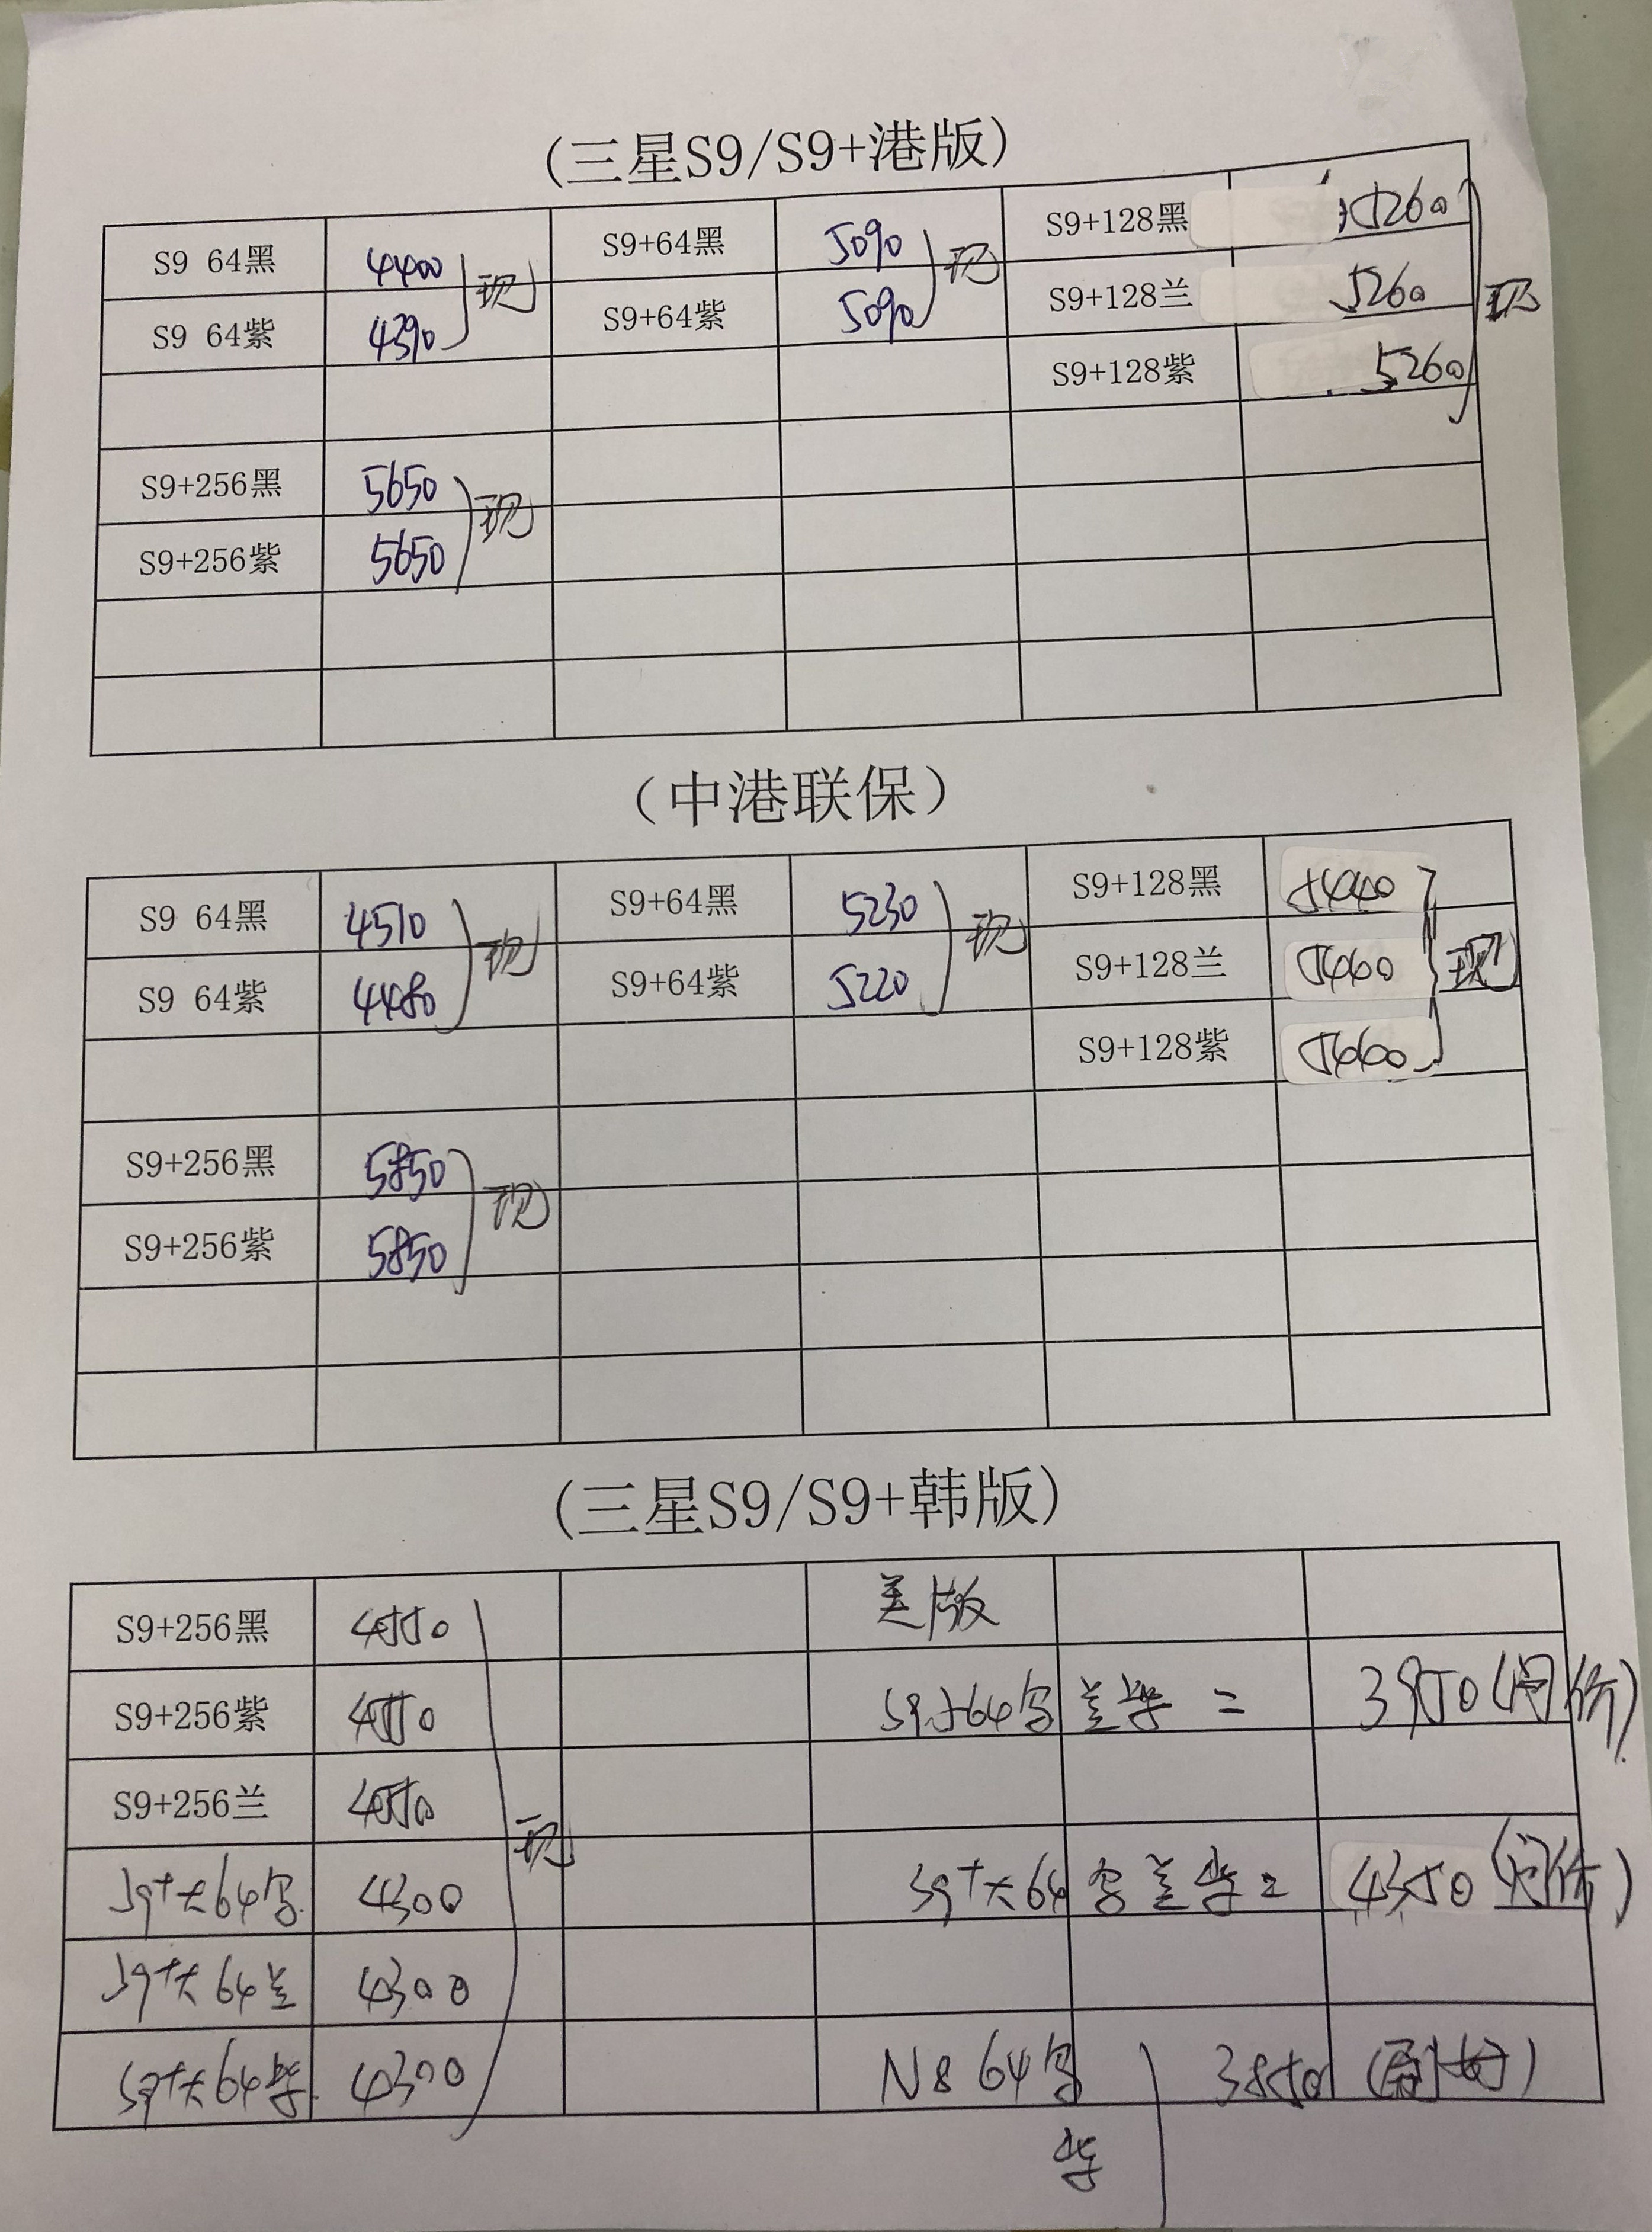 (三星S9/S9+港版)
S9 64黑 4400 S9+64黑 5090 S9+128黑 5260
现 现
S9 64紫 4390 S9+64紫 5090 S9+128兰 5260 现
S9+128紫 5260
S9+256黑 5650
现
S9+256紫 5650
(中港联保)
S9 64黑 4510 S9+64黑 5230 S9+128黑 5440
现 现
S9 64紫 4480 S9+64紫 5220 S9+128兰 5460 现
S9+128紫 5460
S9+256黑 5850
现
S9+256紫 5850
(三星S9/S9+韩版)
S9+256黑 4550 美版
S9+256紫 4550 64 兰紫 = 3950 (问价)
S9+256兰 4550
现
S9+大64 4300 S9+大64 兰紫= 4350 (问价)
S9+大64兰 4300
S9+大64紫 4300 N8 64 3850
紫